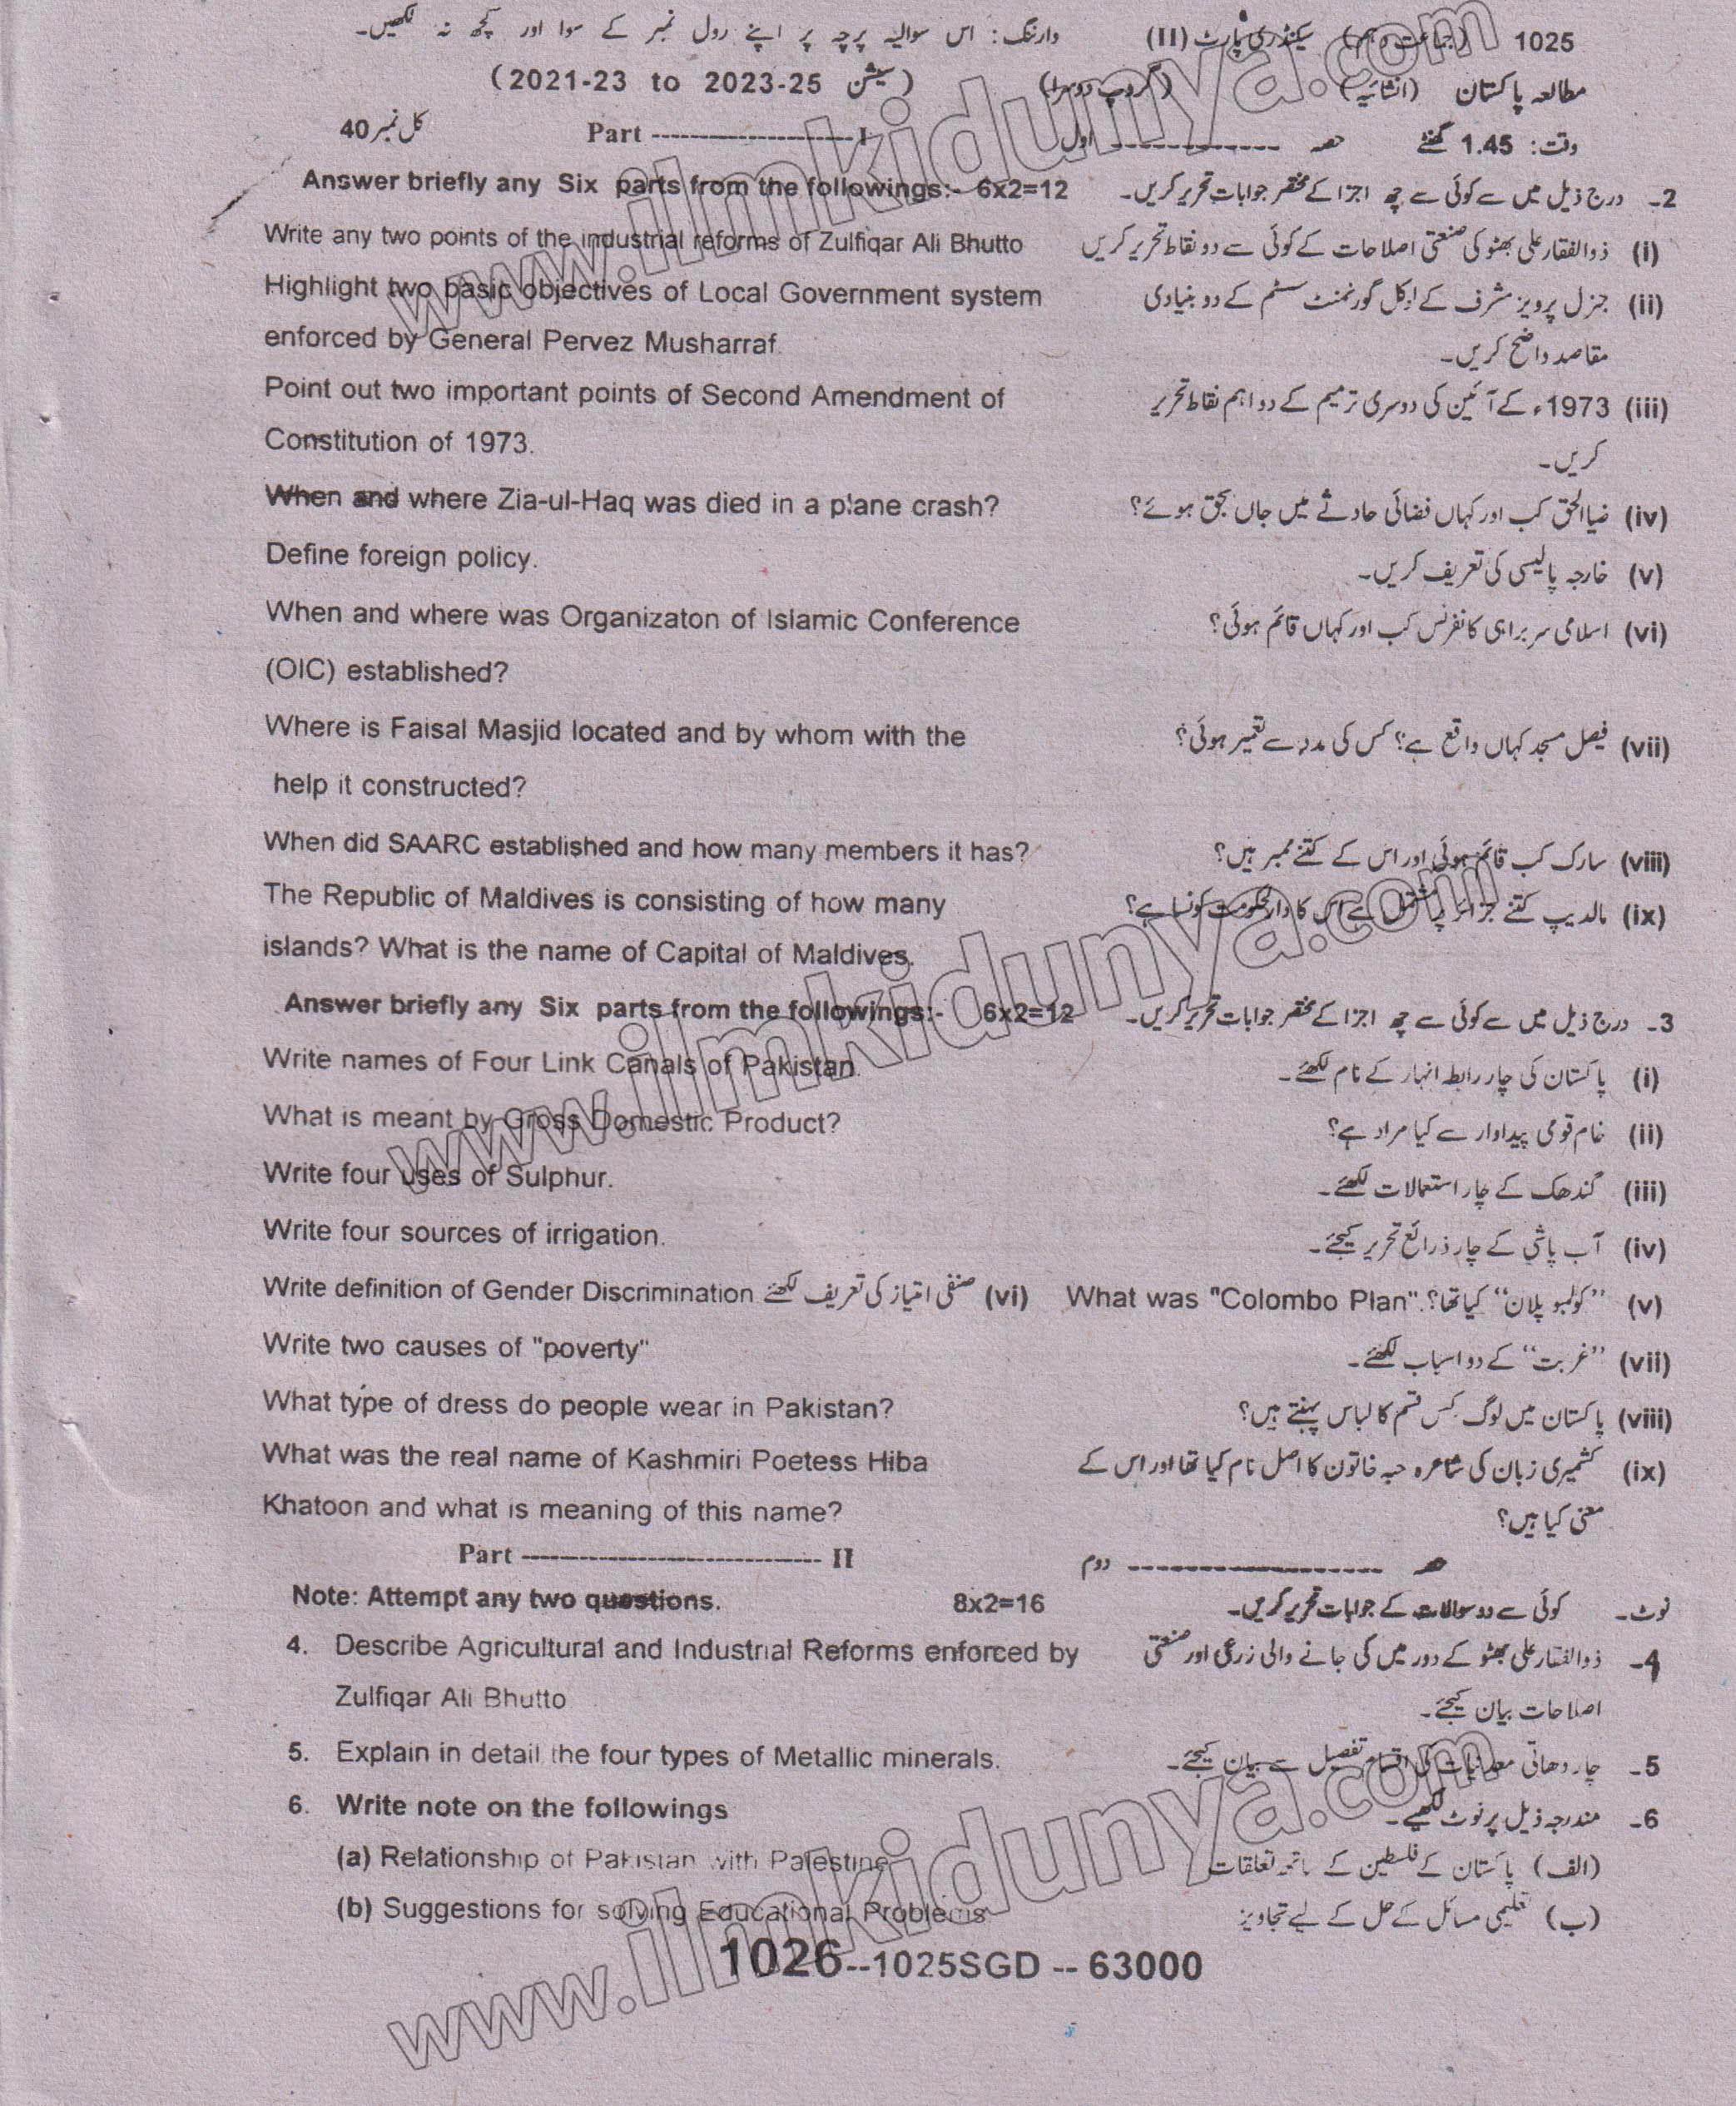 1025 (جماعت دہم) سیکنڈری پارٹ (II) وارننگ: اس سوالیہ پرچہ پر اپنے رول نمبر کے سوا اور کچھ نہ لکھیں۔
مطالعہ پاکستان (انشائیہ) (گروپ دوسرا) (سیشن 2021-23 to 2023-25)
وقت: 1.45 گھنٹے حصہ ------------ اول Part -------------------- I کل نمبر 40
2۔ درج ذیل میں سے کوئی سے چھ اجزا کے مختصر جوابات تحریر کریں۔ Answer briefly any Six parts from the followings:- 6x2=12
(i) ذوالفقار علی بھٹو کی صنعتی اصلاحات کے کوئی سے دو نقاط تحریر کریں Write any two points of the industrial reforms of Zulfiqar Ali Bhutto
(ii) جنرل پرویز مشرف کے لوکل گورنمنٹ سسٹم کے دو بنیادی Highlight two basic objectives of Local Government system
مقاصد واضح کریں۔ enforced by General Pervez Musharraf.
(iii) 1973ء کے آئین کی دوسری ترمیم کے دو اہم نقاط تحریر Point out two important points of Second Amendment of
کریں۔ Constitution of 1973.
(iv) ضیاالحق کب اور کہاں فضائی حادثے میں جاں بحق ہوئے؟ When and where Zia-ul-Haq was died in a plane crash?
(v) خارجہ پالیسی کی تعریف کریں۔ Define foreign policy.
(vi) اسلامی سربراہی کانفرنس کب اور کہاں قائم ہوئی؟ When and where was Organizaton of Islamic Conference
(OIC) established?
(vii) فیصل مسجد کہاں واقع ہے؟ کس کی مدد سے تعمیر ہوئی؟ Where is Faisal Masjid located and by whom with the
help it constructed?
(viii) سارک کب قائم ہوئی اور اس کے کتنے ممبر ہیں؟ When did SAARC established and how many members it has?
(ix) مالدیپ کتنے جزائر پر مشتمل ہے اس کا دارالحکومت کونسا ہے؟ The Republic of Maldives is consisting of how many
islands? What is the name of Capital of Maldives.
3۔ درج ذیل میں سے کوئی سے چھ اجزا کے مختصر جوابات تحریر کریں۔ Answer briefly any Six parts from the followings:- 6x2=12
(i) پاکستان کی چار رابطہ انہار کے نام لکھئے۔ Write names of Four Link Canals of Pakistan.
(ii) خام قومی پیداوار سے کیا مراد ہے؟ What is meant by Gross Domestic Product?
(iii) گندھک کے چار استعمالات لکھئے۔ Write four uses of Sulphur.
(iv) آب پاشی کے چار ذرائع تحریر کیجئے۔ Write four sources of irrigation.
(v) ''کولمبو پلان'' کیا تھا؟ What was "Colombo Plan". (vi) صنفی امتیاز کی تعریف لکھئے Write definition of Gender Discrimination
(vii) ''غربت'' کے دو اسباب لکھئے۔ Write two causes of "poverty"
(viii) پاکستان میں لوگ کس قسم کا لباس پہنتے ہیں؟ What type of dress do people wear in Pakistan?
(ix) کشمیری زبان کی شاعرہ حبہ خاتون کا اصل نام کیا تھا اور اس کے What was the real name of Kashmiri Poetess Hiba
معنی کیا ہیں؟ Khatoon and what is meaning of this name?
حصہ ------------------ دوم Part ------------------------------ II
نوٹ۔ کوئی سے دو سوالات کے جوابات تحریر کریں۔ Note: Attempt any two questions. 8x2=16
4۔ ذوالفقار علی بھٹو کے دور میں کی جانے والی زرعی اور صنعتی 4. Describe Agricultural and Industrial Reforms enforced by
اصلاحات بیان کیجئے۔ Zulfiqar Ali Bhutto
5۔ چار دھاتی معدنیات کی اقسام تفصیل سے بیان کیجئے۔ 5. Explain in detail the four types of Metallic minerals.
6۔ مندرجہ ذیل پر نوٹ لکھیے۔ 6. Write note on the followings
(الف) پاکستان کے فلسطین کے ساتھ تعلقات (a) Relationship of Pakistan with Palestine
(ب) تعلیمی مسائل کے حل کے لیے تجاویز (b) Suggestions for solving Educational Problems
1026--1025SGD -- 63000
www.ilmkidunya.com
www.ilmkidunya.com
www.ilmkidunya.com